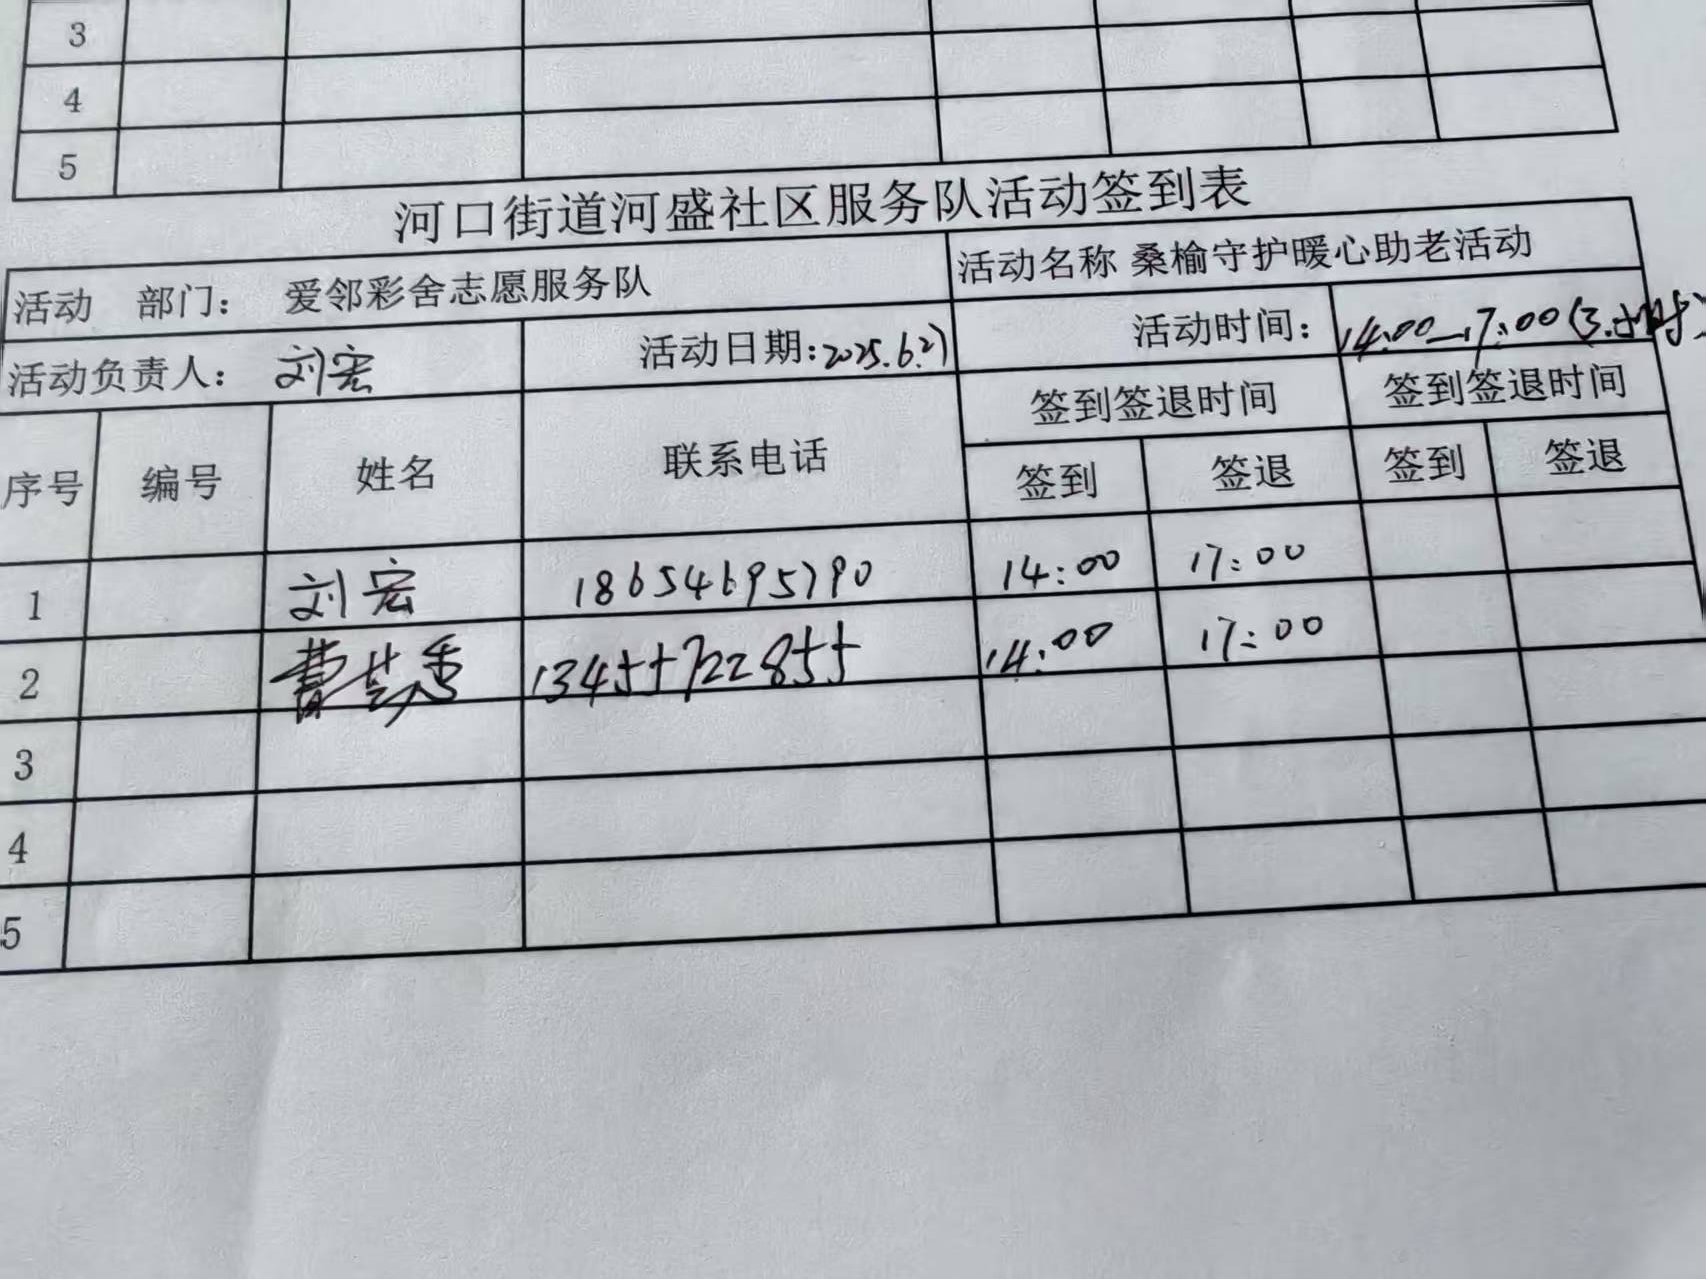 3
4
5
河口街道河盛社区服务队活动签到表
活动 部门： 爱邻彩舍志愿服务队 活动名称 桑榆守护暖心助老活动
活动负责人： 刘宏 活动日期：2025.6.27 活动时间： 14:00—17:00（3.小时）
签到签退时间 签到签退时间
序号 编号 姓名 联系电话 签到 签退 签到 签退
1 刘宏 18654695790 14:00 17:00
2 曹芸香 13455722855 14:00 17:00
3
4
5